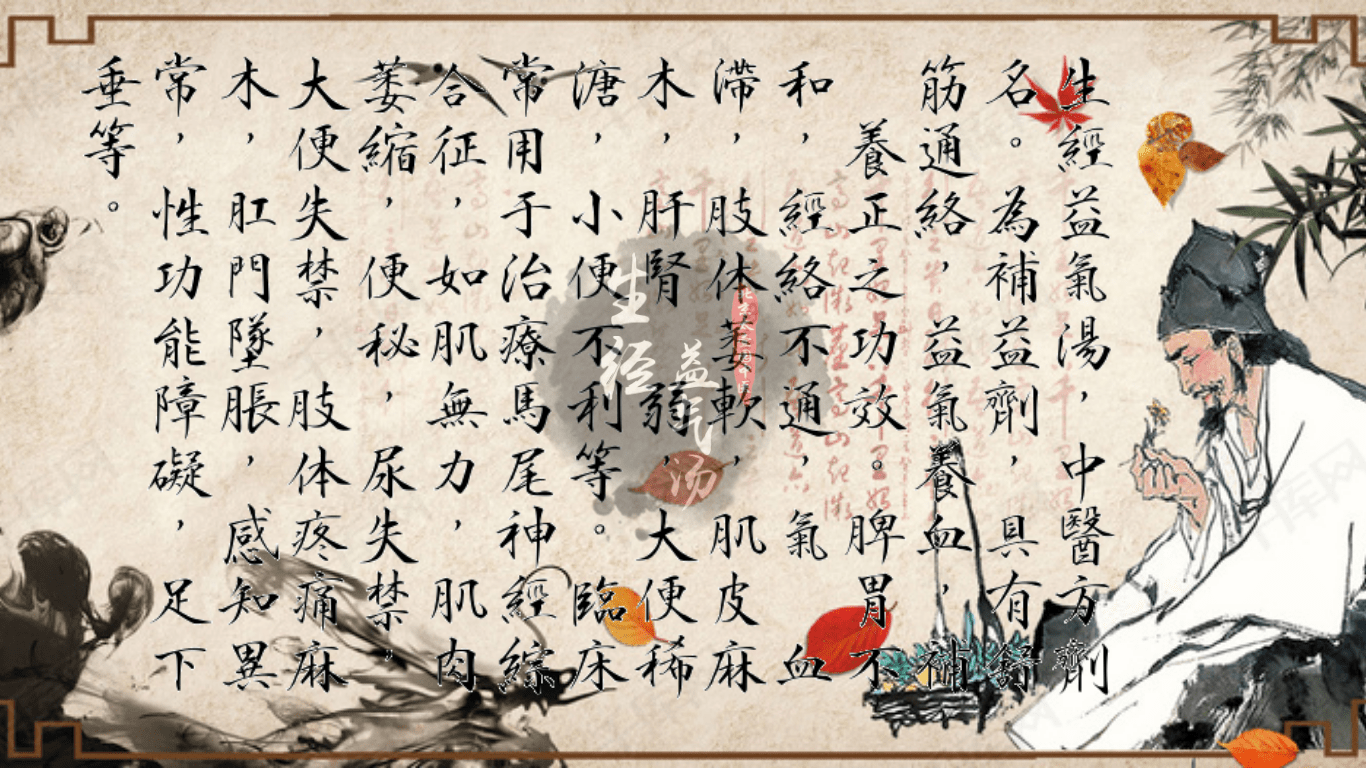 生經益氣湯，中醫方劑
名。為補益劑，具有舒
筋通絡，益氣養血，補
養正之功效。脾胃不
和，經絡不通，氣血
滯，肢体萎軟，肌皮麻
木，肝腎弱，大便稀
溏，小便不利等。臨床
常用于治療馬尾神經綜
合征，如肌無力，肌肉
萎縮，便秘，尿失禁，
大便失禁，肢体疼痛麻
木，肛門墜脹，感知異
常，性功能障礙，足下
垂等。
生经
益气汤